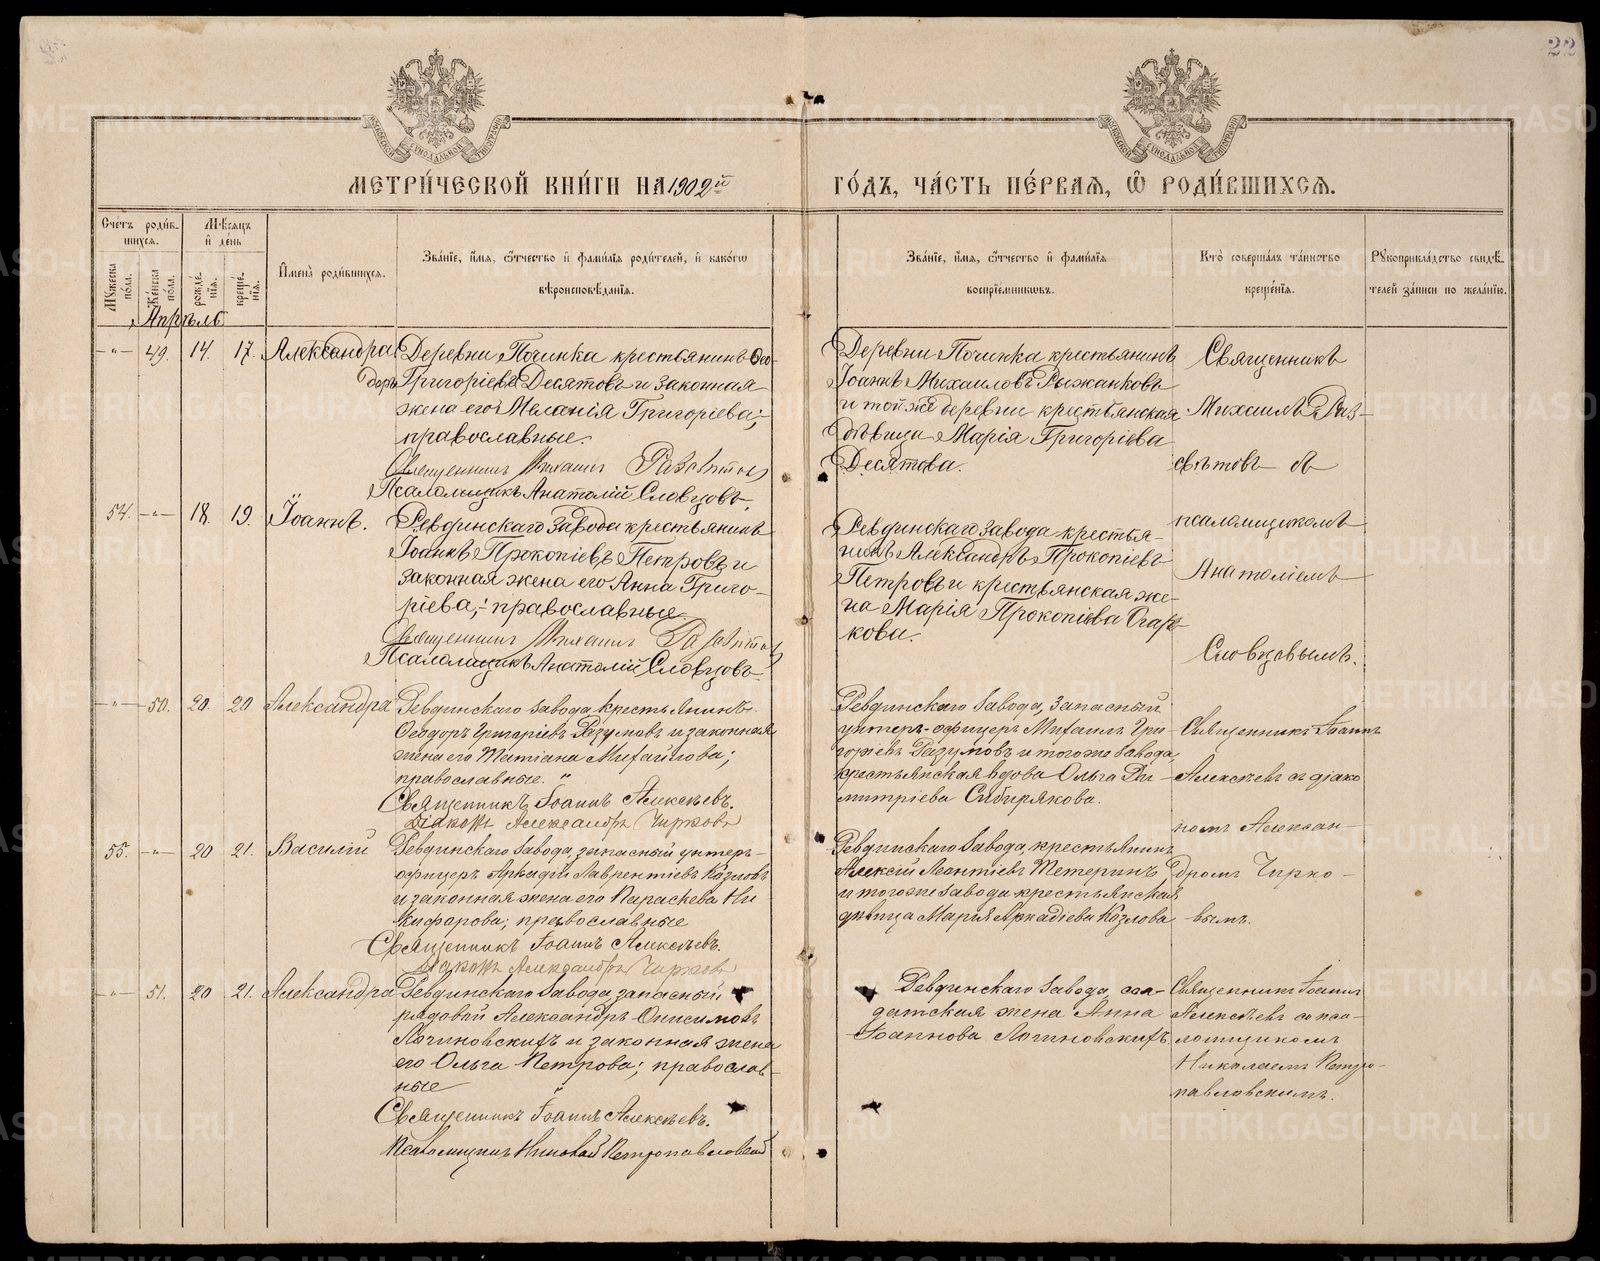 22
МЕТРИ́ЧЕСКОЙ КНИ́ГИ НА 1902й ГО́ДЪ, ЧА́СТЬ ПЕ́РВАЯ, Ѿ РОДИ́ВШИХСЯ.
Сче́тъ роди́в-
шихся.
Мѣ́сяцъ
и҆ де́нь
Му́жеска
по́ла.
Же́нска
по́ла.
рожде́-
нїя.
креще́-
нїя.
И҆мена̀ роди́вшихся.
Зва́нїе, и҆́мя, ѻ҆́тчество и҆ фами́лїя роди́телей, и҆ како́гѡ
вѣроисповѣ́данїя.
Зва́нїе, и҆́мя, ѻ҆́тчество и҆ фами́лїя
воспрїе́мникѡвъ.
Кто̀ соверша́лъ та́инство
креще́нїя.
Рꙋкоприкла́дство свидѣ́-
телей за́писи по жела́нїю.
Апрѣль
-"- 49. 14. 17. Александра
Деревни Починка крестьянинъ Ѳео-
доръ Григоріевъ Десятовъ и законная
жена его Меланія Григоріева;
православные.
Священникъ Михаилъ Разсвѣтовъ
Псаломщикъ Анатолій Словцовъ.
Деревни Починка крестьянинъ
Іоаннъ Михаиловъ Рыжанковъ
и той же деревни крестьянская
дѣвица Марія Григоріева
Десятова.
Священникъ
Михаилъ Раз-
свѣтовъ съ
псаломщикомъ
Анатоліемъ
Словцовымъ.
54. -"- 18. 19. Іоаннъ.
Ревдинскаго завода крестьянинъ
Іоаннъ Прокопіевъ Петровъ и
законная жена его Анна Григо-
ріева; православные.
Священникъ Михаилъ Разсвѣтовъ
Псаломщикъ Анатолій Словцовъ
Ревдинскаго завода крестья-
нинъ Александръ Прокопіевъ
Петровъ и крестьянская же-
на Марія Прокопіева Огар-
кова.
-"- 50. 20. 20 Александра
Ревдинскаго завода, крестьянинъ
Ѳеодоръ Григоріевъ Разумовъ и законная
жена его Татіана Михайлова;
православные."
Священникъ Іоаннъ Алексѣевъ.
Діаконъ Александръ Чирковъ
Ревдинскаго завода, запасный
унтеръ-офицеръ Михаилъ Гри
горіевъ Разумовъ и того же завода,
крестьянская вдова Ольга Ди-
митріева Сибирякова.
Священникъ Іоаннъ
Алексѣевъ съ діако
номъ Алексан-
дромъ Чирко-
вымъ.
55. -"- 20 21. Василій
Ревдинскаго завода, запасный унтеръ-
офицеръ Аркадій Лаврентіевъ Козловъ
и законная жена его Параскева Ни
кифорова; православные
Священникъ Іоаннъ Алексѣевъ.
Діаконъ Александръ Чирковъ
Ревдинскаго завода, крестьянинъ
Алексій Леонтіевъ Тетеринъ
и того же завода крестьянская
дѣвица Марія Аркадіева Козлова
-"- 51. 20 21. Александра
Ревдинскаго завода, запасный
рядовой Александръ Онисимовъ
Логиновскихъ и законная жена
его Ольга Петрова; православ-
ные
Священникъ Іоаннъ Алексѣевъ.
Псаломщикъ Николай Петропавловскій
Ревдинскаго завода, сол-
датская жена Анна
Іоаннова Логиновскихъ
Священникъ Іоаннъ
Алексѣевъ со пса-
ломщикомъ
Николаемъ Петро-
павловскимъ.